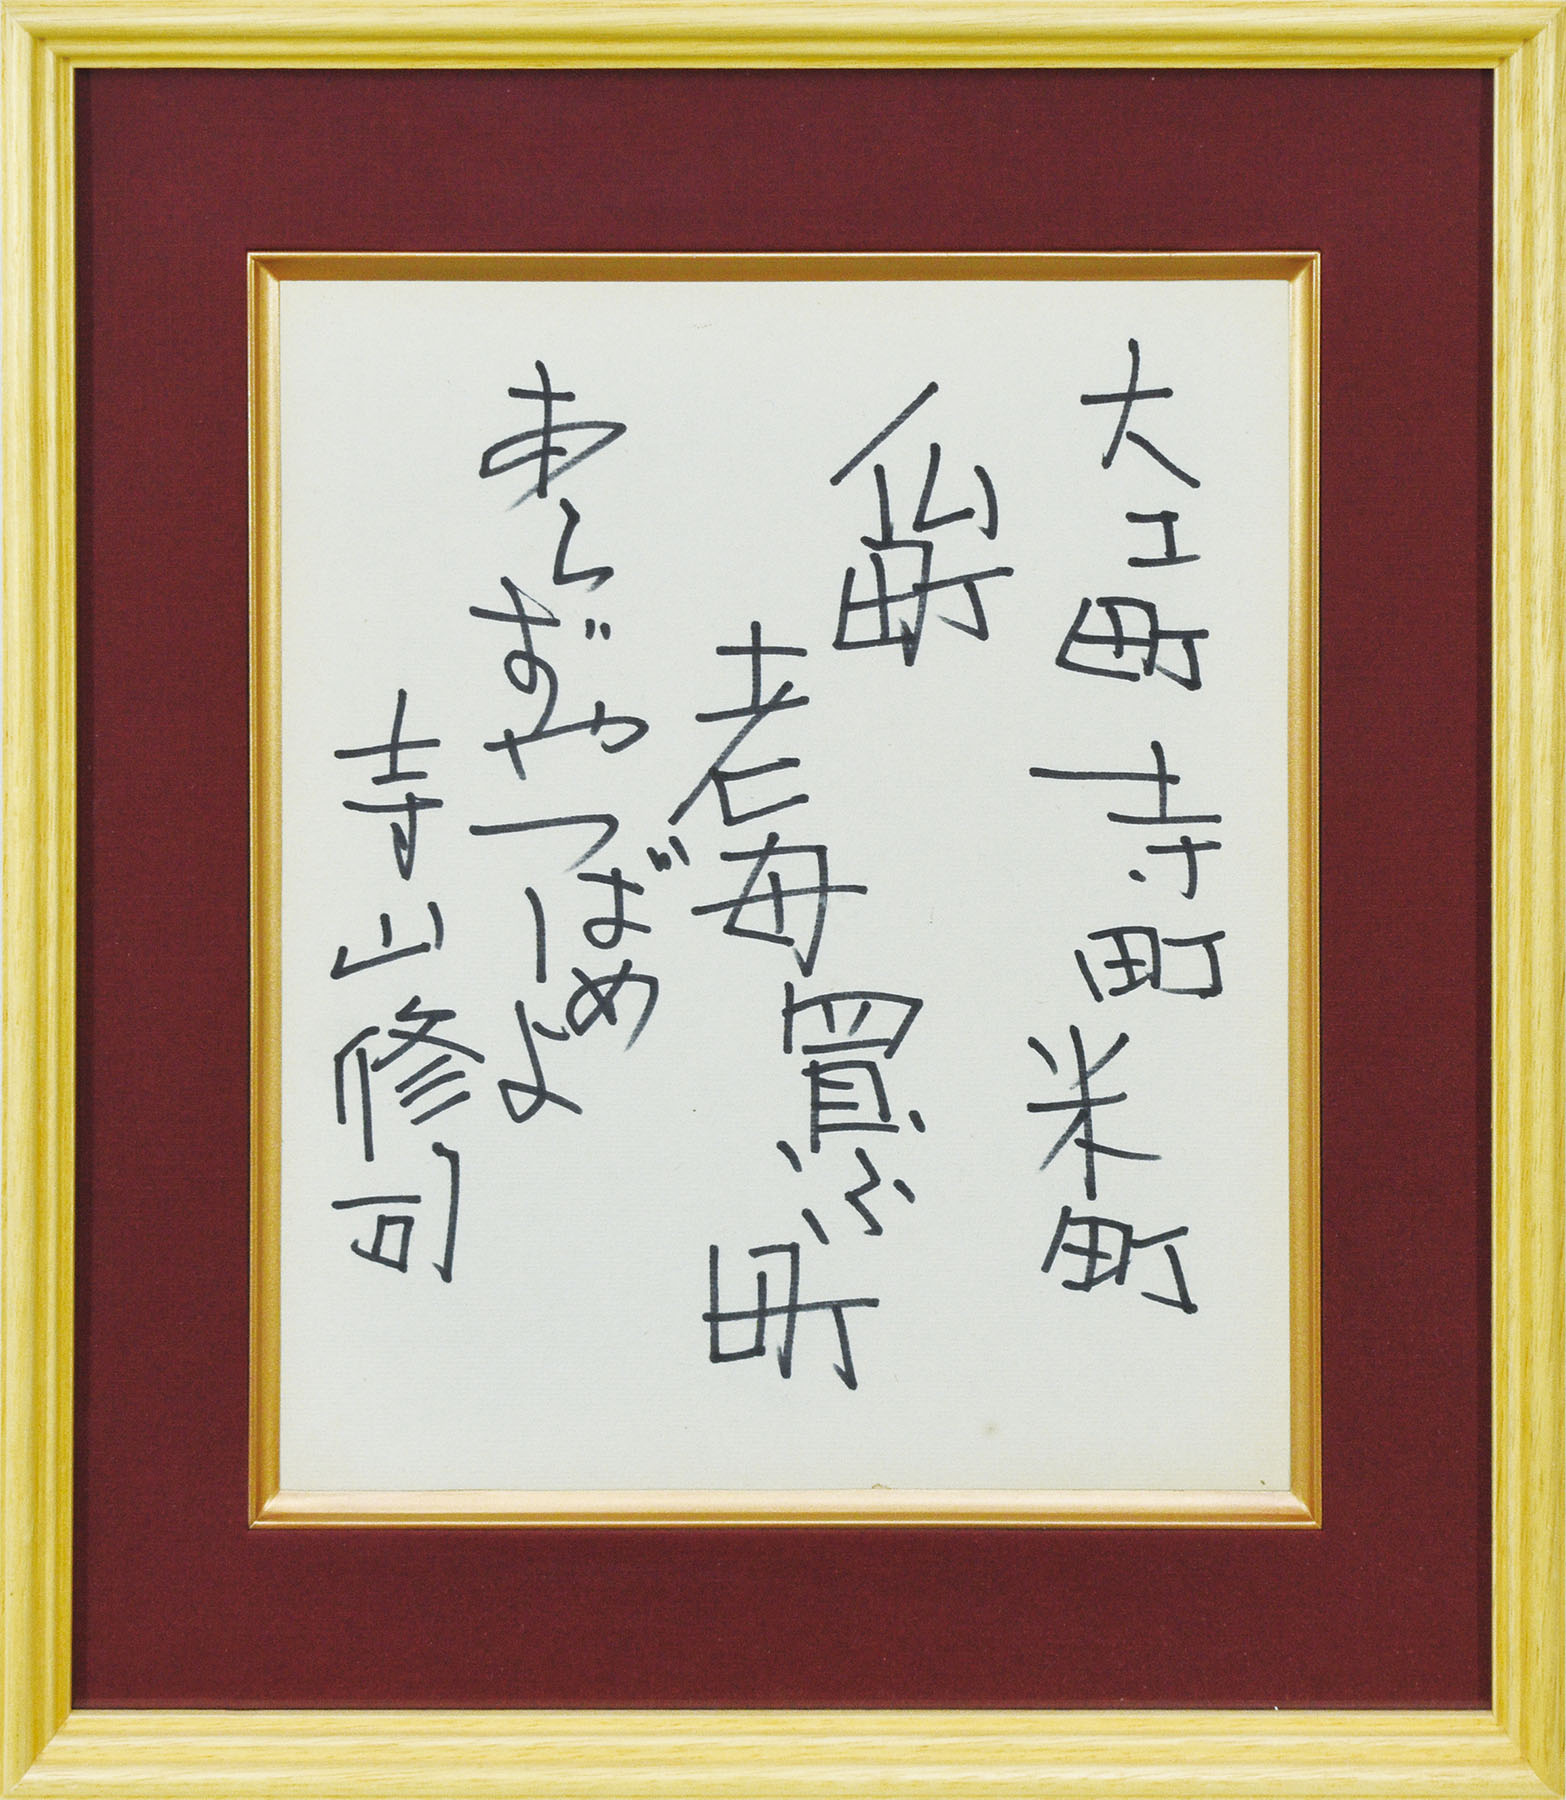 大工町寺町米町
仏町
老母買ふ町
あらずやつばめ
よ
寺山修司